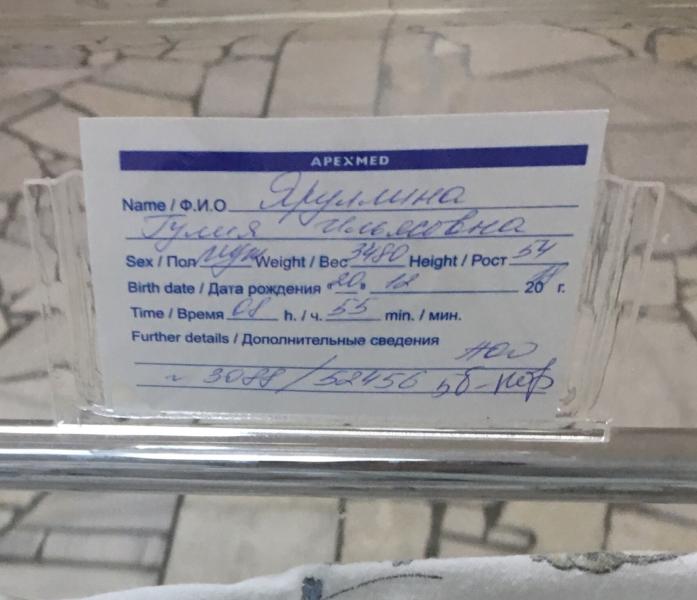 APEXMED
Name / Ф.И.О Яруллина
Гулия Ильясовна
Sex / Пол муж Weight / Вес 3480 Height / Рост 54
Birth date / Дата рождения 20. 12 2018 г.
Time / Время 08 h. / ч. 55 min. / мин.
Further details / Дополнительные сведения
№ 3088 / 52456